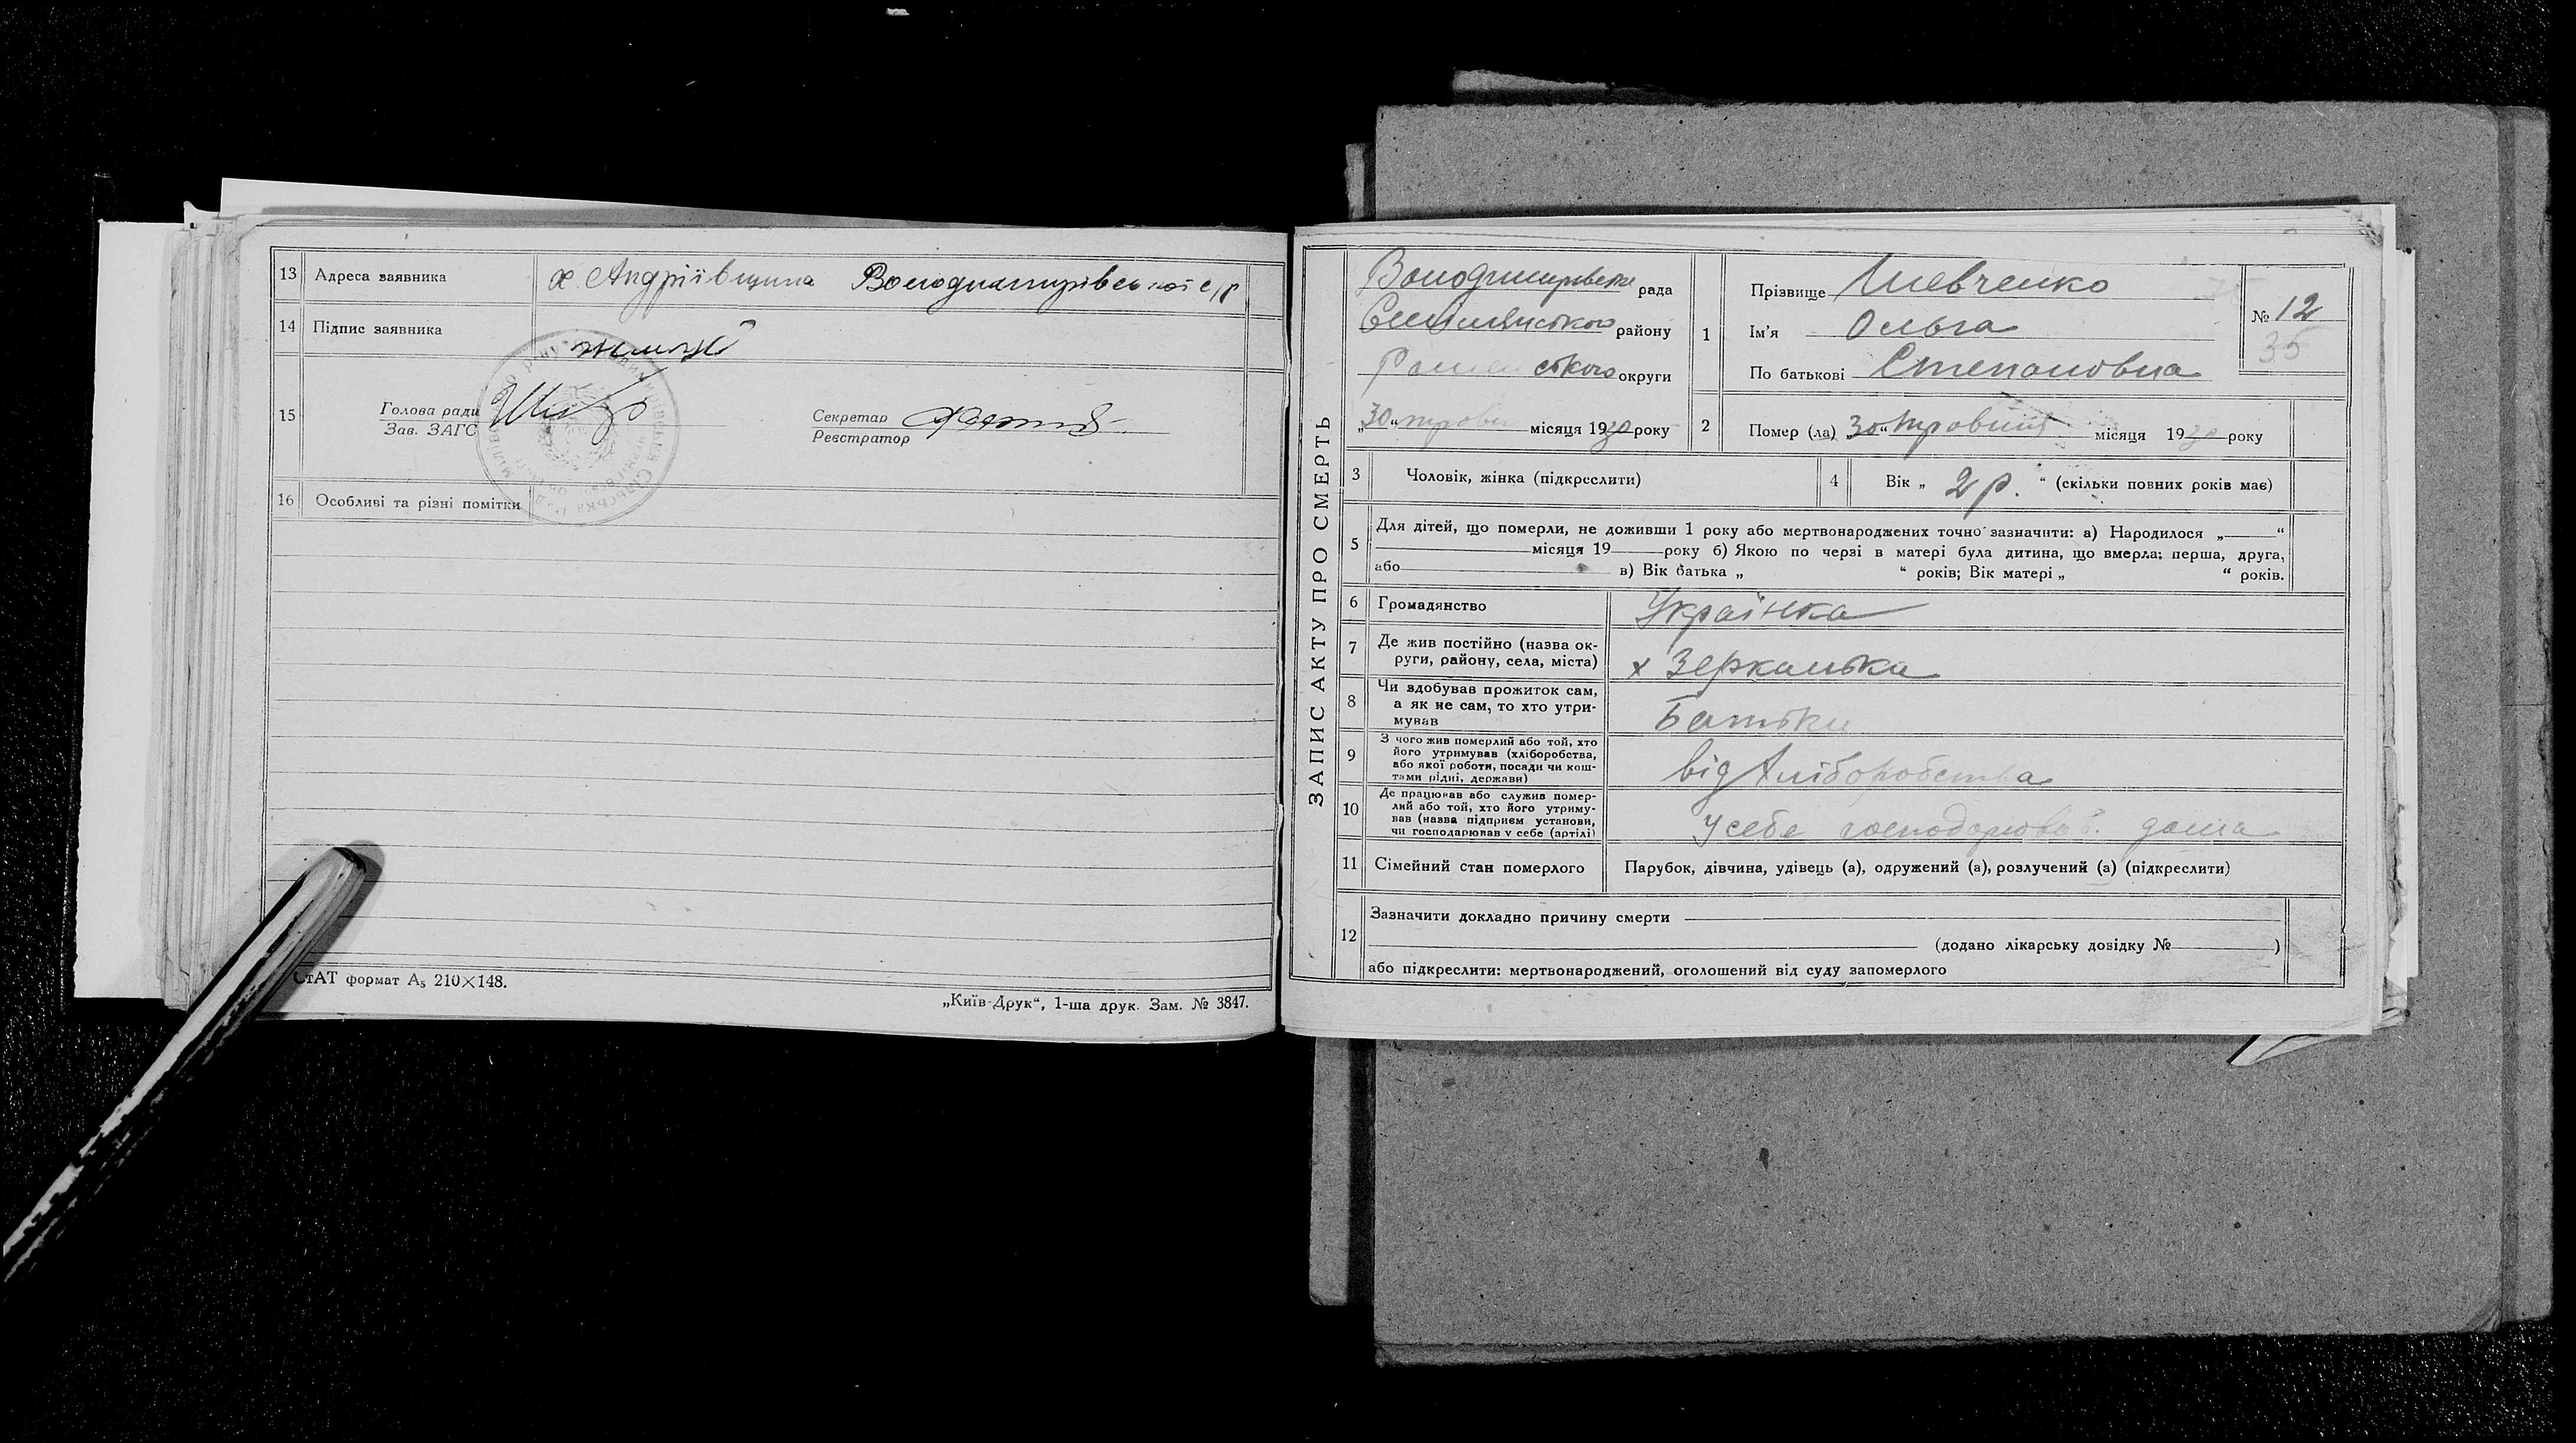 13 Адреса заявника х. Андріївщина Володимирівської с/р
14 Підпис заявника
15 Голова ради
Зав. ЗАГС
Секретар
Реєстратор
16 Особливі та різні помітки
СтАТ формат А₅ 210×148.
„Київ-Друк“, 1-ша друк. Зам. № 3847.
ЗАПИС АКТУ ПРО СМЕРТЬ
Володимирівська рада
району
Роменського округи
„30“ травня місяця 1930 року
1 Прізвище Шевченко
Ім'я Ольга
По батькові Степановна
№ 12
35
2 Помер (ла) „30“ травня місяця 1930 року
3 Чоловік, жінка (підкреслити)
4 Вік „ 2 р. “ (скільки повних років має)
5 Для дітей, що померли, не доживши 1 року або мертвонароджених точно зазначити: а) Народилося „ “
місяця 19 року б) Якою по черзі в матері була дитина, що вмерла: перша, друга,
або в) Вік батька „ “ років; Вік матері „ “ років.
6 Громадянство Українка
7 Де жив постійно (назва ок-
руги, району, села, міста) х Зеркалька
8 Чи здобував прожиток сам,
а як не сам, то хто утри-
мував Батьки
9 З чого жив померлий або той, хто
його утримував (хліборобства,
або якої роботи, посади чи кош-
тами рідні, держави) від хліборобства
10 Де працював або служив помер-
лий або той, хто його утриму-
вав (назва підприєм установи,
чи господарював у себе (артілі) У себе господарював. дома
11 Сімейний стан померлого Парубок, дівчина, удівець (а), одружений (а), розлучений (а) (підкреслити)
12 Зазначити докладно причину смерти
(додано лікарську довідку № )
або підкреслити: мертвонароджений, оголошений від суду запомерлого